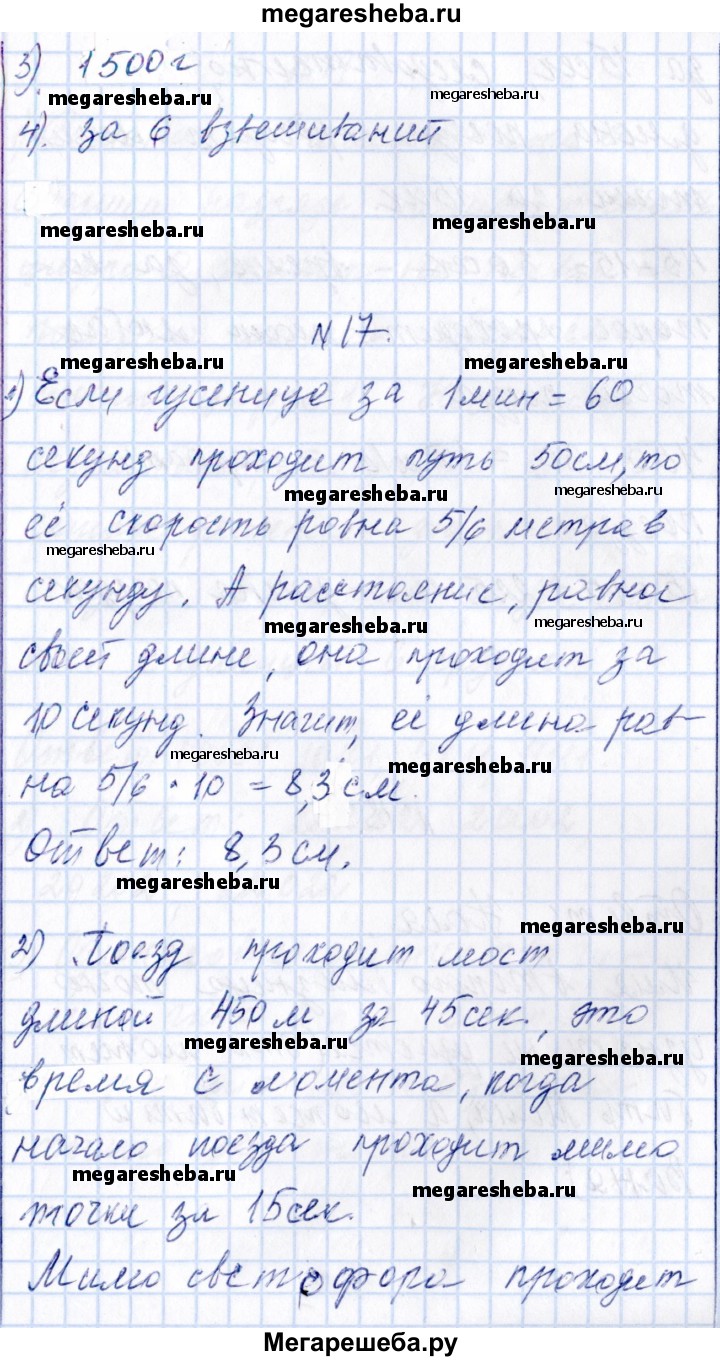 megaresheba.ru
3) 1500 г
megaresheba.ru megaresheba.ru
4). за 6 взвешиваний
megaresheba.ru megaresheba.ru
№17.
megaresheba.ru megaresheba.ru
1) Если гусеница за 1мин = 60
секунд проходит путь 50см, то
megaresheba.ru megaresheba.ru
её скорость ровна 5/6 метра в
megaresheba.ru
секунду. А расстояние, равное
megaresheba.ru megaresheba.ru
своей длине, она проходит за
10 секунд. Значит, её длина рав-
megaresheba.ru megaresheba.ru
на 5/6 · 10 = 8,3 см.
Ответ: 8,3 см.
megaresheba.ru
megaresheba.ru
2) Поезд проходит мост
длиной 450 м за 45сек., это
megaresheba.ru megaresheba.ru
время с момента, когда
начало поезда проходит мимо
megaresheba.ru megaresheba.ru
точки за 15сек.
Мимо светофора проходит
Мегарешеба.ру